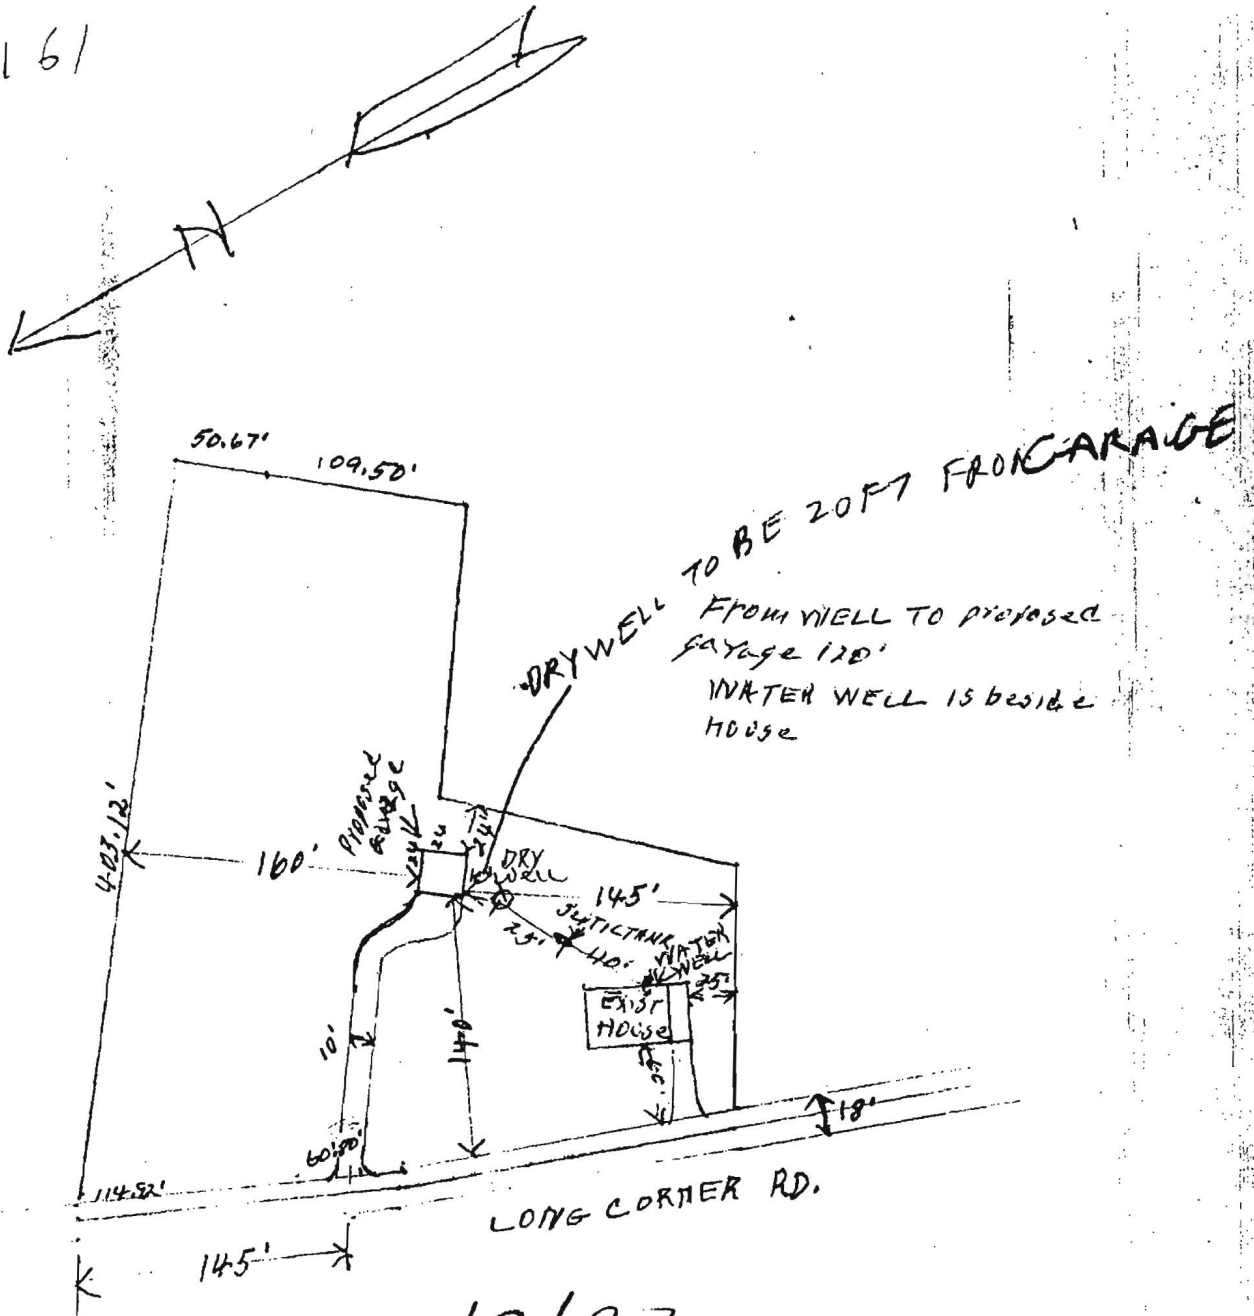 161
N
50.67'
109.50'
DRYWELL TO BE 20FT FROM GARAGE
From WELL TO proposed
garage 120'
WATER WELL IS beside
House
403.12'
160'
Proposed
Garage
24
24
24'
DRY
WELL
145'
25'
SEPTICTANK
40'
WATER
WELL
25'
EXIST
House
10'
140'
18'
114.82'
LONG CORNER RD.
145'